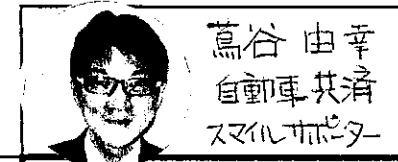 蔦谷 由幸
自動車共済
スマイルサポーター